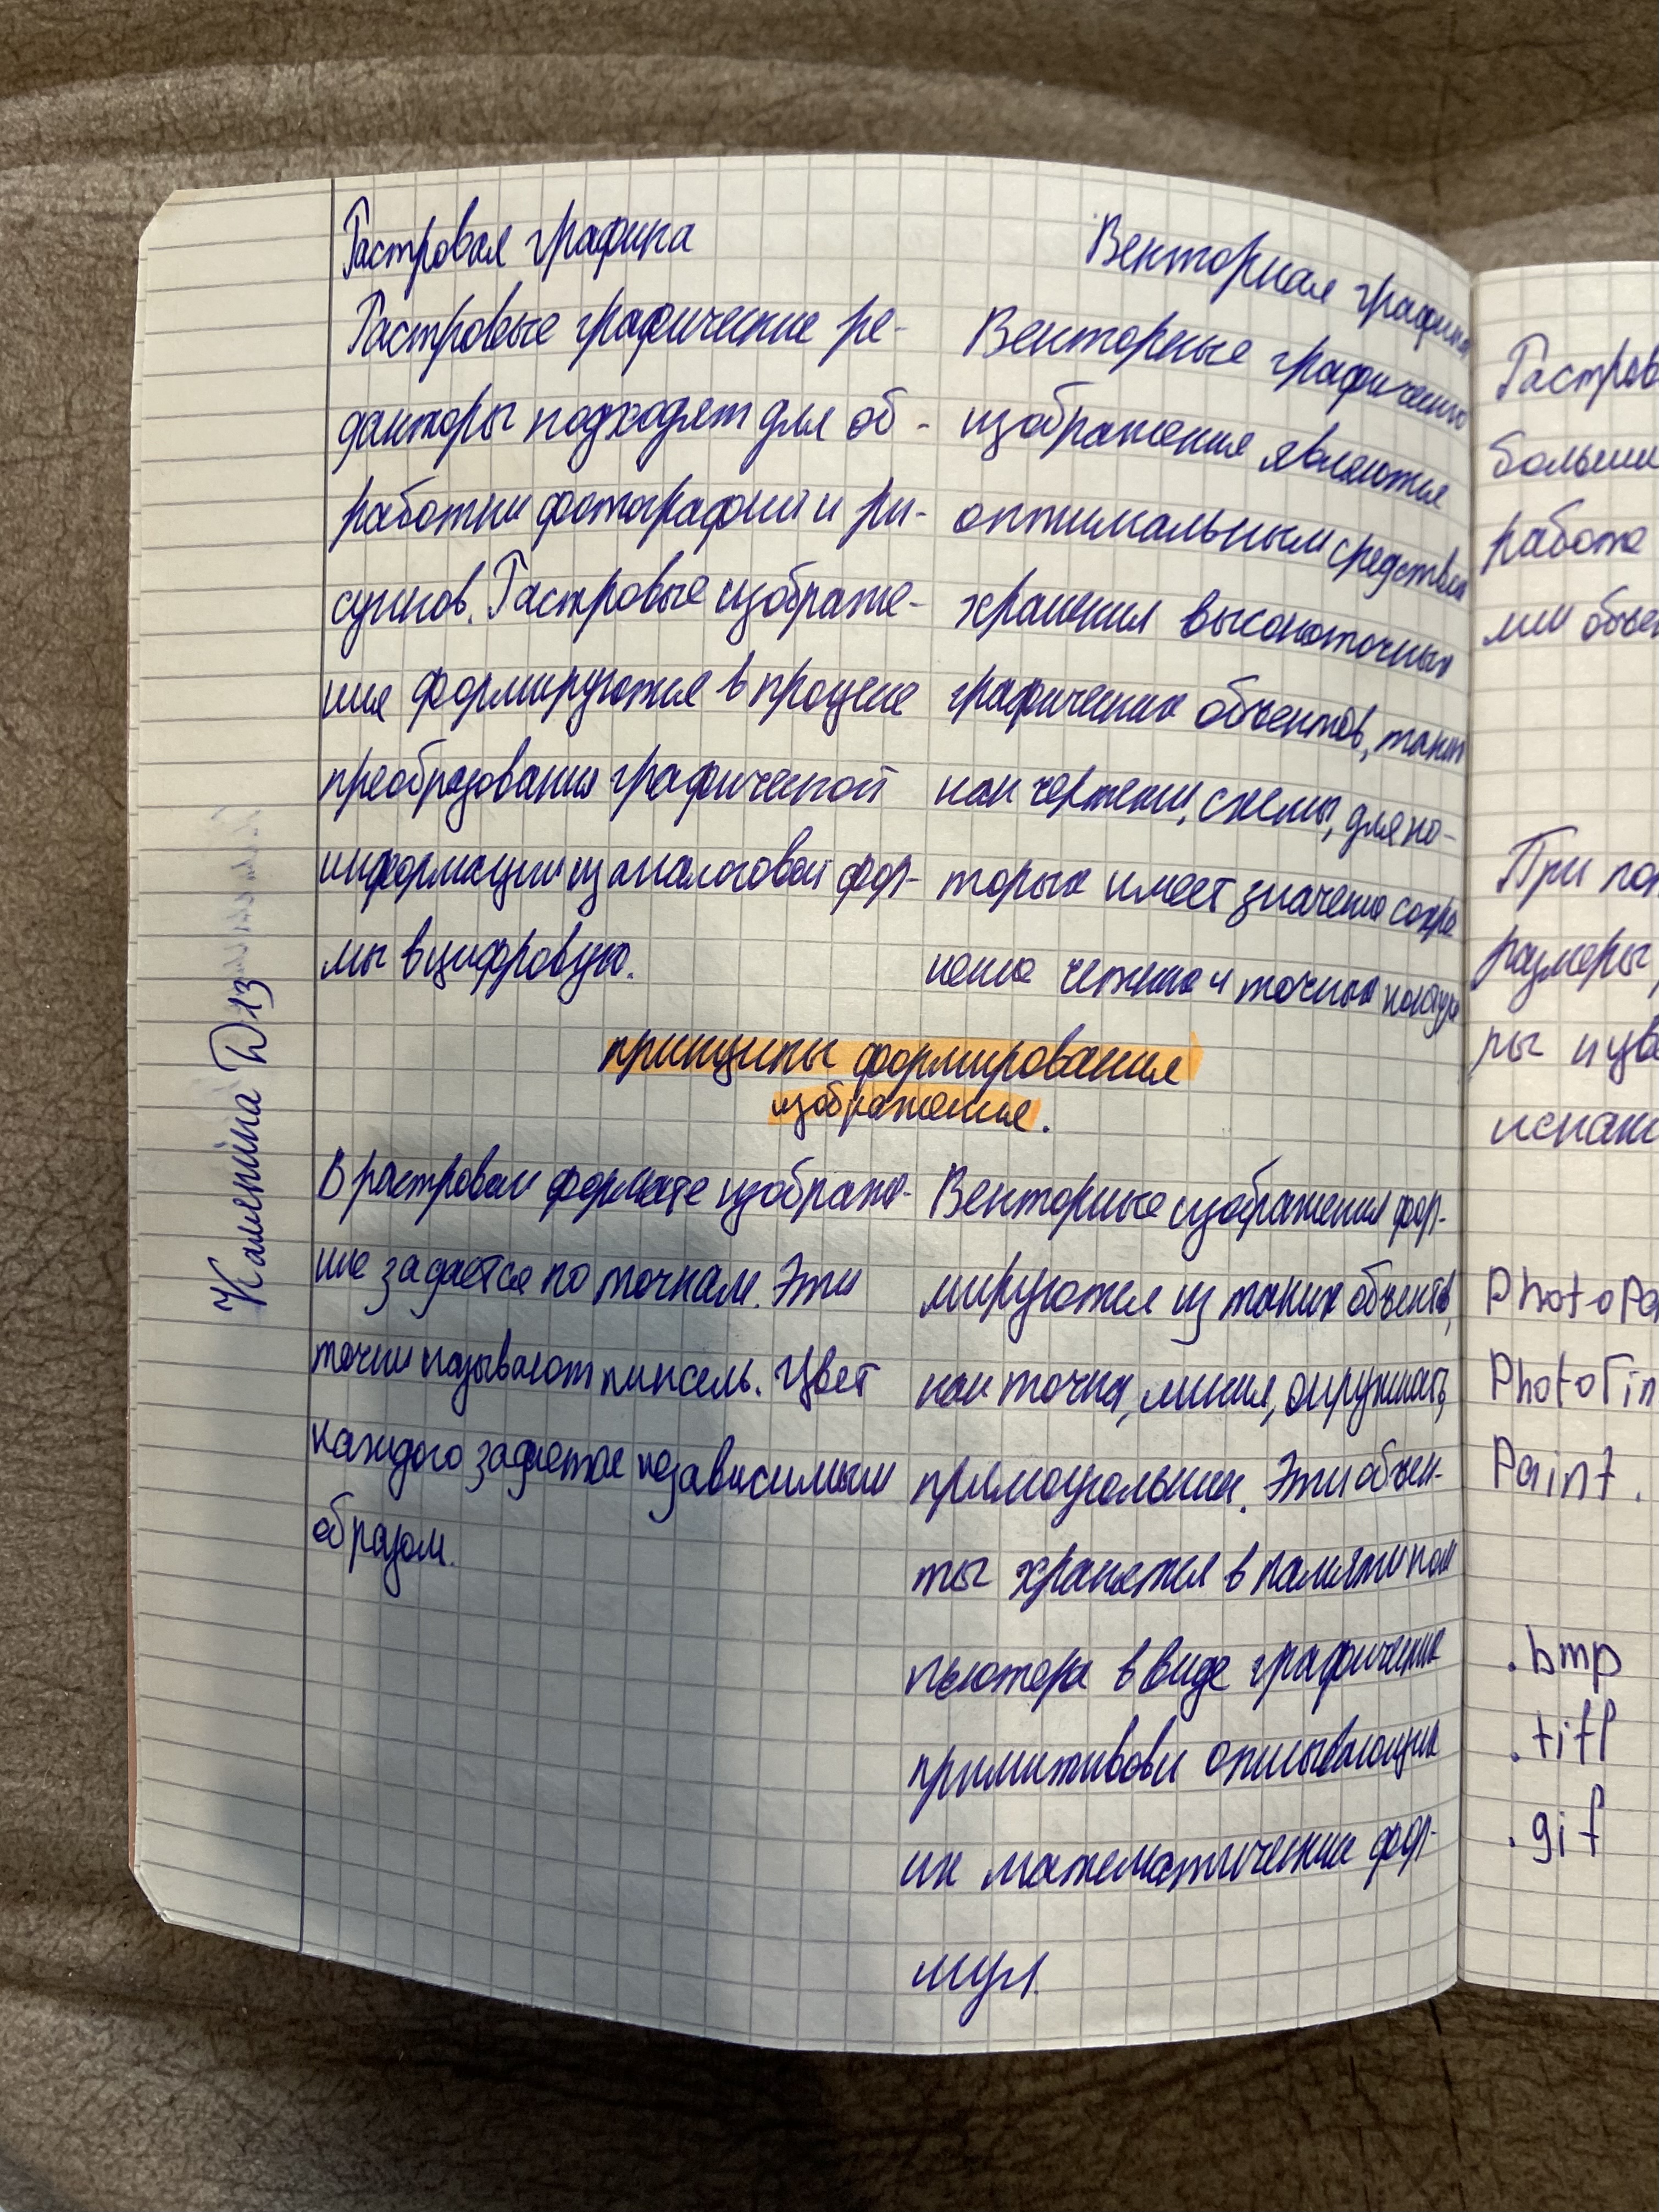 Растровая графика
Растровые графические ре-
дакторы подходят для об-
работки фотографий и ри-
сунков. Растровые изображе-
ния формируются в процессе
преобразования графической
информации из аналоговой фор-
мы в цифровую.
Векторная графика
Векторные графические
изображения являются
оптимальным средством
хранения высокоточных
графических объектов, таких
как чертежи, схемы, для ко-
торых имеет значение сохра
нение четких и точных контуро
принципы формирования
изображения.
В растровом формате изображе-
ние задается по точкам. Эти
точки называют пиксель. Цвет
каждого задается независимым
образом.
Векторные изображения фор-
мируются из таких объектов,
как точка, линия, окружность,
прямоугольник. Эти объек-
ты хранятся в памяти ком
пьютера в виде графических
примитивов и описывающих
их математических фор-
мул.
Каменкина D13
Растров
большие
работе
ми объе
При
размеры
ры и цв
искаж
PhotoPa
Paint.
.bmp
.tiff
.gif